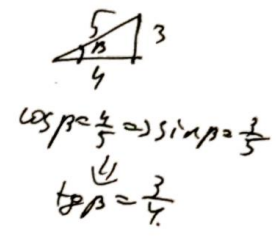 5
β
3
4
cos β = 4/5 => sin β = 3/5
⇓
tg β = 3/4.